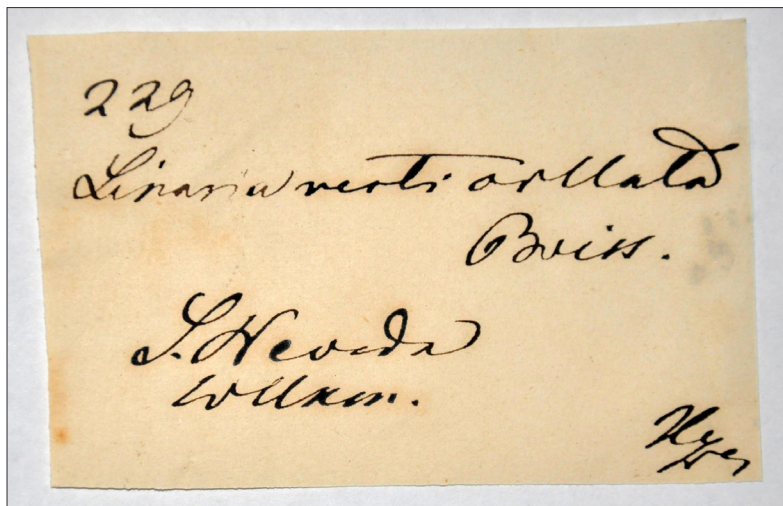 229
Linaria verticillata
Boiss.
S. Nevada
Willkom.